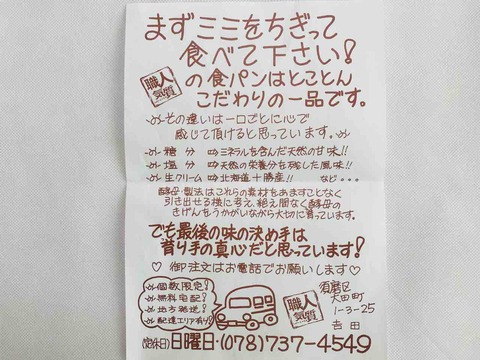 まずミミをちぎって
食べて下さい!
職人気質 の食パンはとことん
こだわりの一品です。
その違いは一口ごとに心で
感じて頂けると思っています。
糖分 ⇨ミネラルを含んだ天然の甘味!!
塩分 ⇨天然の栄養分を残した風味!!
生クリーム⇨北海道十勝産!! など…
酵母・製法はこれらの素材をあますことなく
引き出せる様に考え、絶え間なく酵母の
きげんをうかがいながら大切に育っています。
でも最後の味の決め手は
育り手の真心だと思っています!
♡ 御注文はお電話でお願いします♡
個数限定!
無料宅配!
地方発送!
配達エリア有り!
職人気質
須磨区
大田町
1-3-25
吉田
(定休日)日曜日・(078)737-4549